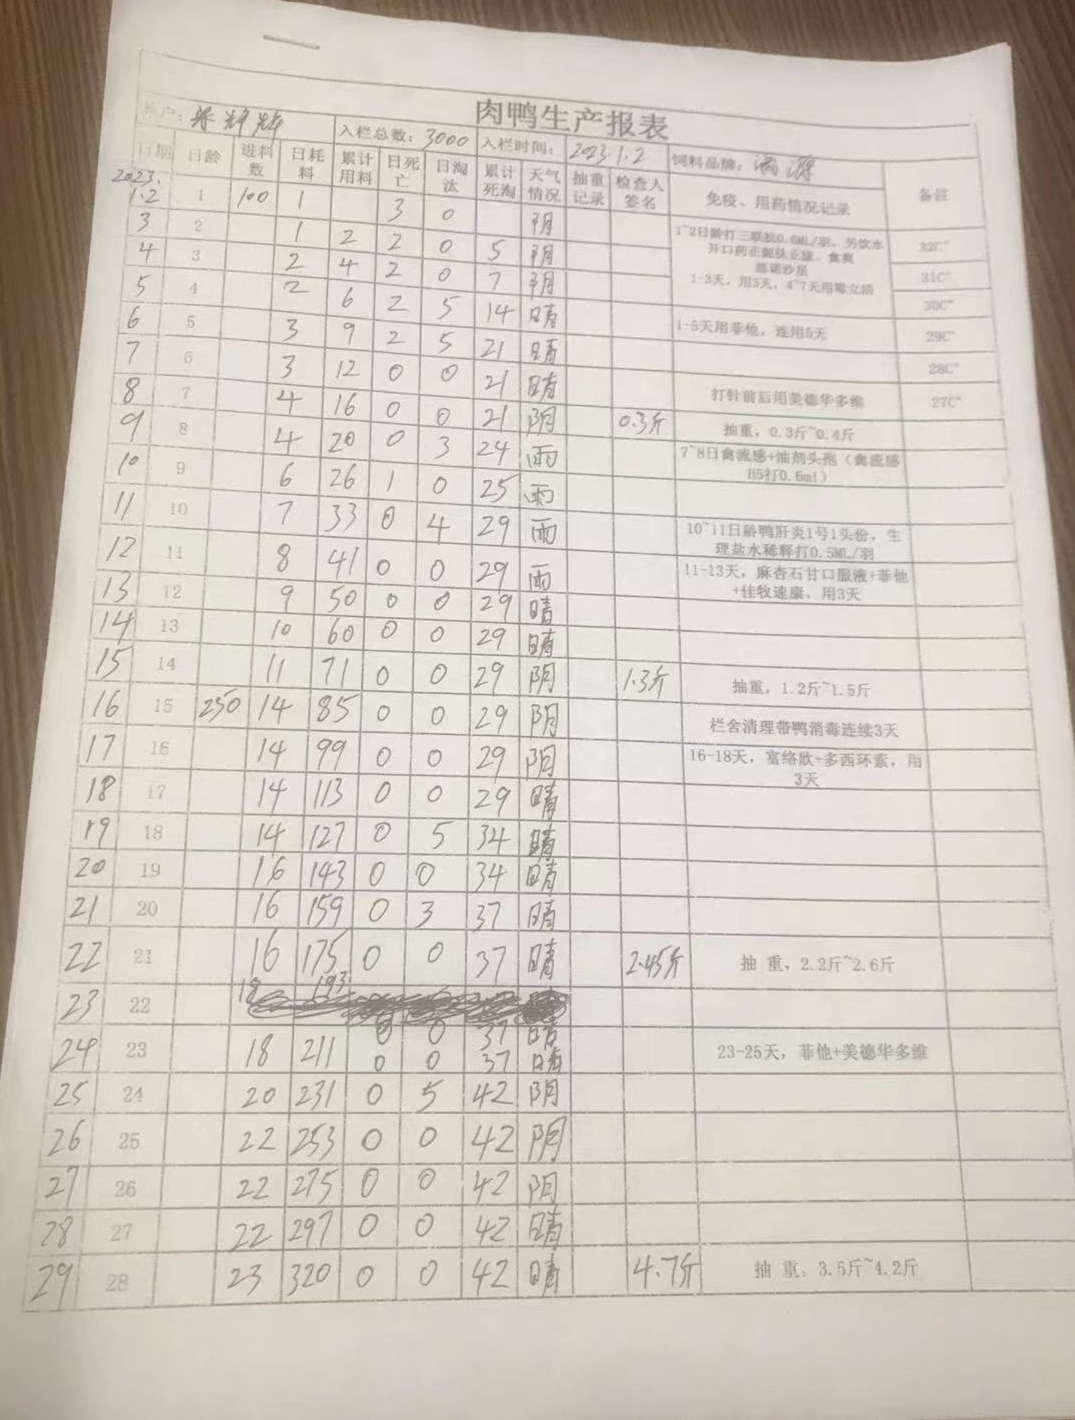 肉鸭生产报表
入栏总数：3000 入栏时间：2023.1.2 饲料品牌：
日期 日龄 进料数 日耗料 累计用料 日死亡 日淘汰 累计死淘 天气情况 抽重记录 检查人签名 免疫、用药情况记录 备注
2023.
1.2 1 100 1 3 0 阴
3 2 1 2 2 0 5 阴 1~2日龄打三联抗0.6ML/羽，另饮水 32C°
4 3 2 4 2 0 7 阴 1-3天，用3天，4~7天用 31C°
5 4 2 6 2 5 14 晴 30C°
6 5 3 9 2 5 21 晴 1-5天用菲他，连用5天 29C°
7 6 3 12 0 0 21 晴 28C°
8 7 4 16 0 0 21 阴 打针前后用美德华多维 27C°
9 8 4 20 0 3 24 雨 0.3斤 抽重，0.3斤~0.4斤
10 9 6 26 1 0 25 雨 7~8日禽流感+油剂头孢（禽流感H5打0.6ml）
11 10 7 33 0 4 29 雨 10~11日龄鸭肝炎1号1头份，生理盐水稀释打0.5ML/羽
12 11 8 41 0 0 29 雨 11-13天，麻杏石甘口服液+菲他+佳牧速康，用3天
13 12 9 50 0 0 29 晴
14 13 10 60 0 0 29 晴
15 14 11 71 0 0 29 阴 1.3斤 抽重，1.2斤~1.5斤
16 15 250 14 85 0 0 29 阴 栏舍清理带鸭消毒连续3天
17 16 14 99 0 0 29 阴 16-18天，富络欣+多西环素，用3天
18 17 14 113 0 0 29 晴
19 18 14 127 0 5 34 晴
20 19 16 143 0 0 34 晴
21 20 16 159 0 3 37 晴
22 21 16 175 0 0 37 晴 2.45斤 抽 重，2.2斤~2.6斤
23 22 18 193 0 0 37 晴
24 23 18 211 0 0 37 晴 23-25天，菲他+美德华多维
25 24 20 231 0 5 42 阴
26 25 22 253 0 0 42 阴
27 26 22 275 0 0 42 阴
28 27 22 297 0 0 42 晴
29 28 23 320 0 0 42 晴 4.7斤 抽 重，3.5斤~4.2斤